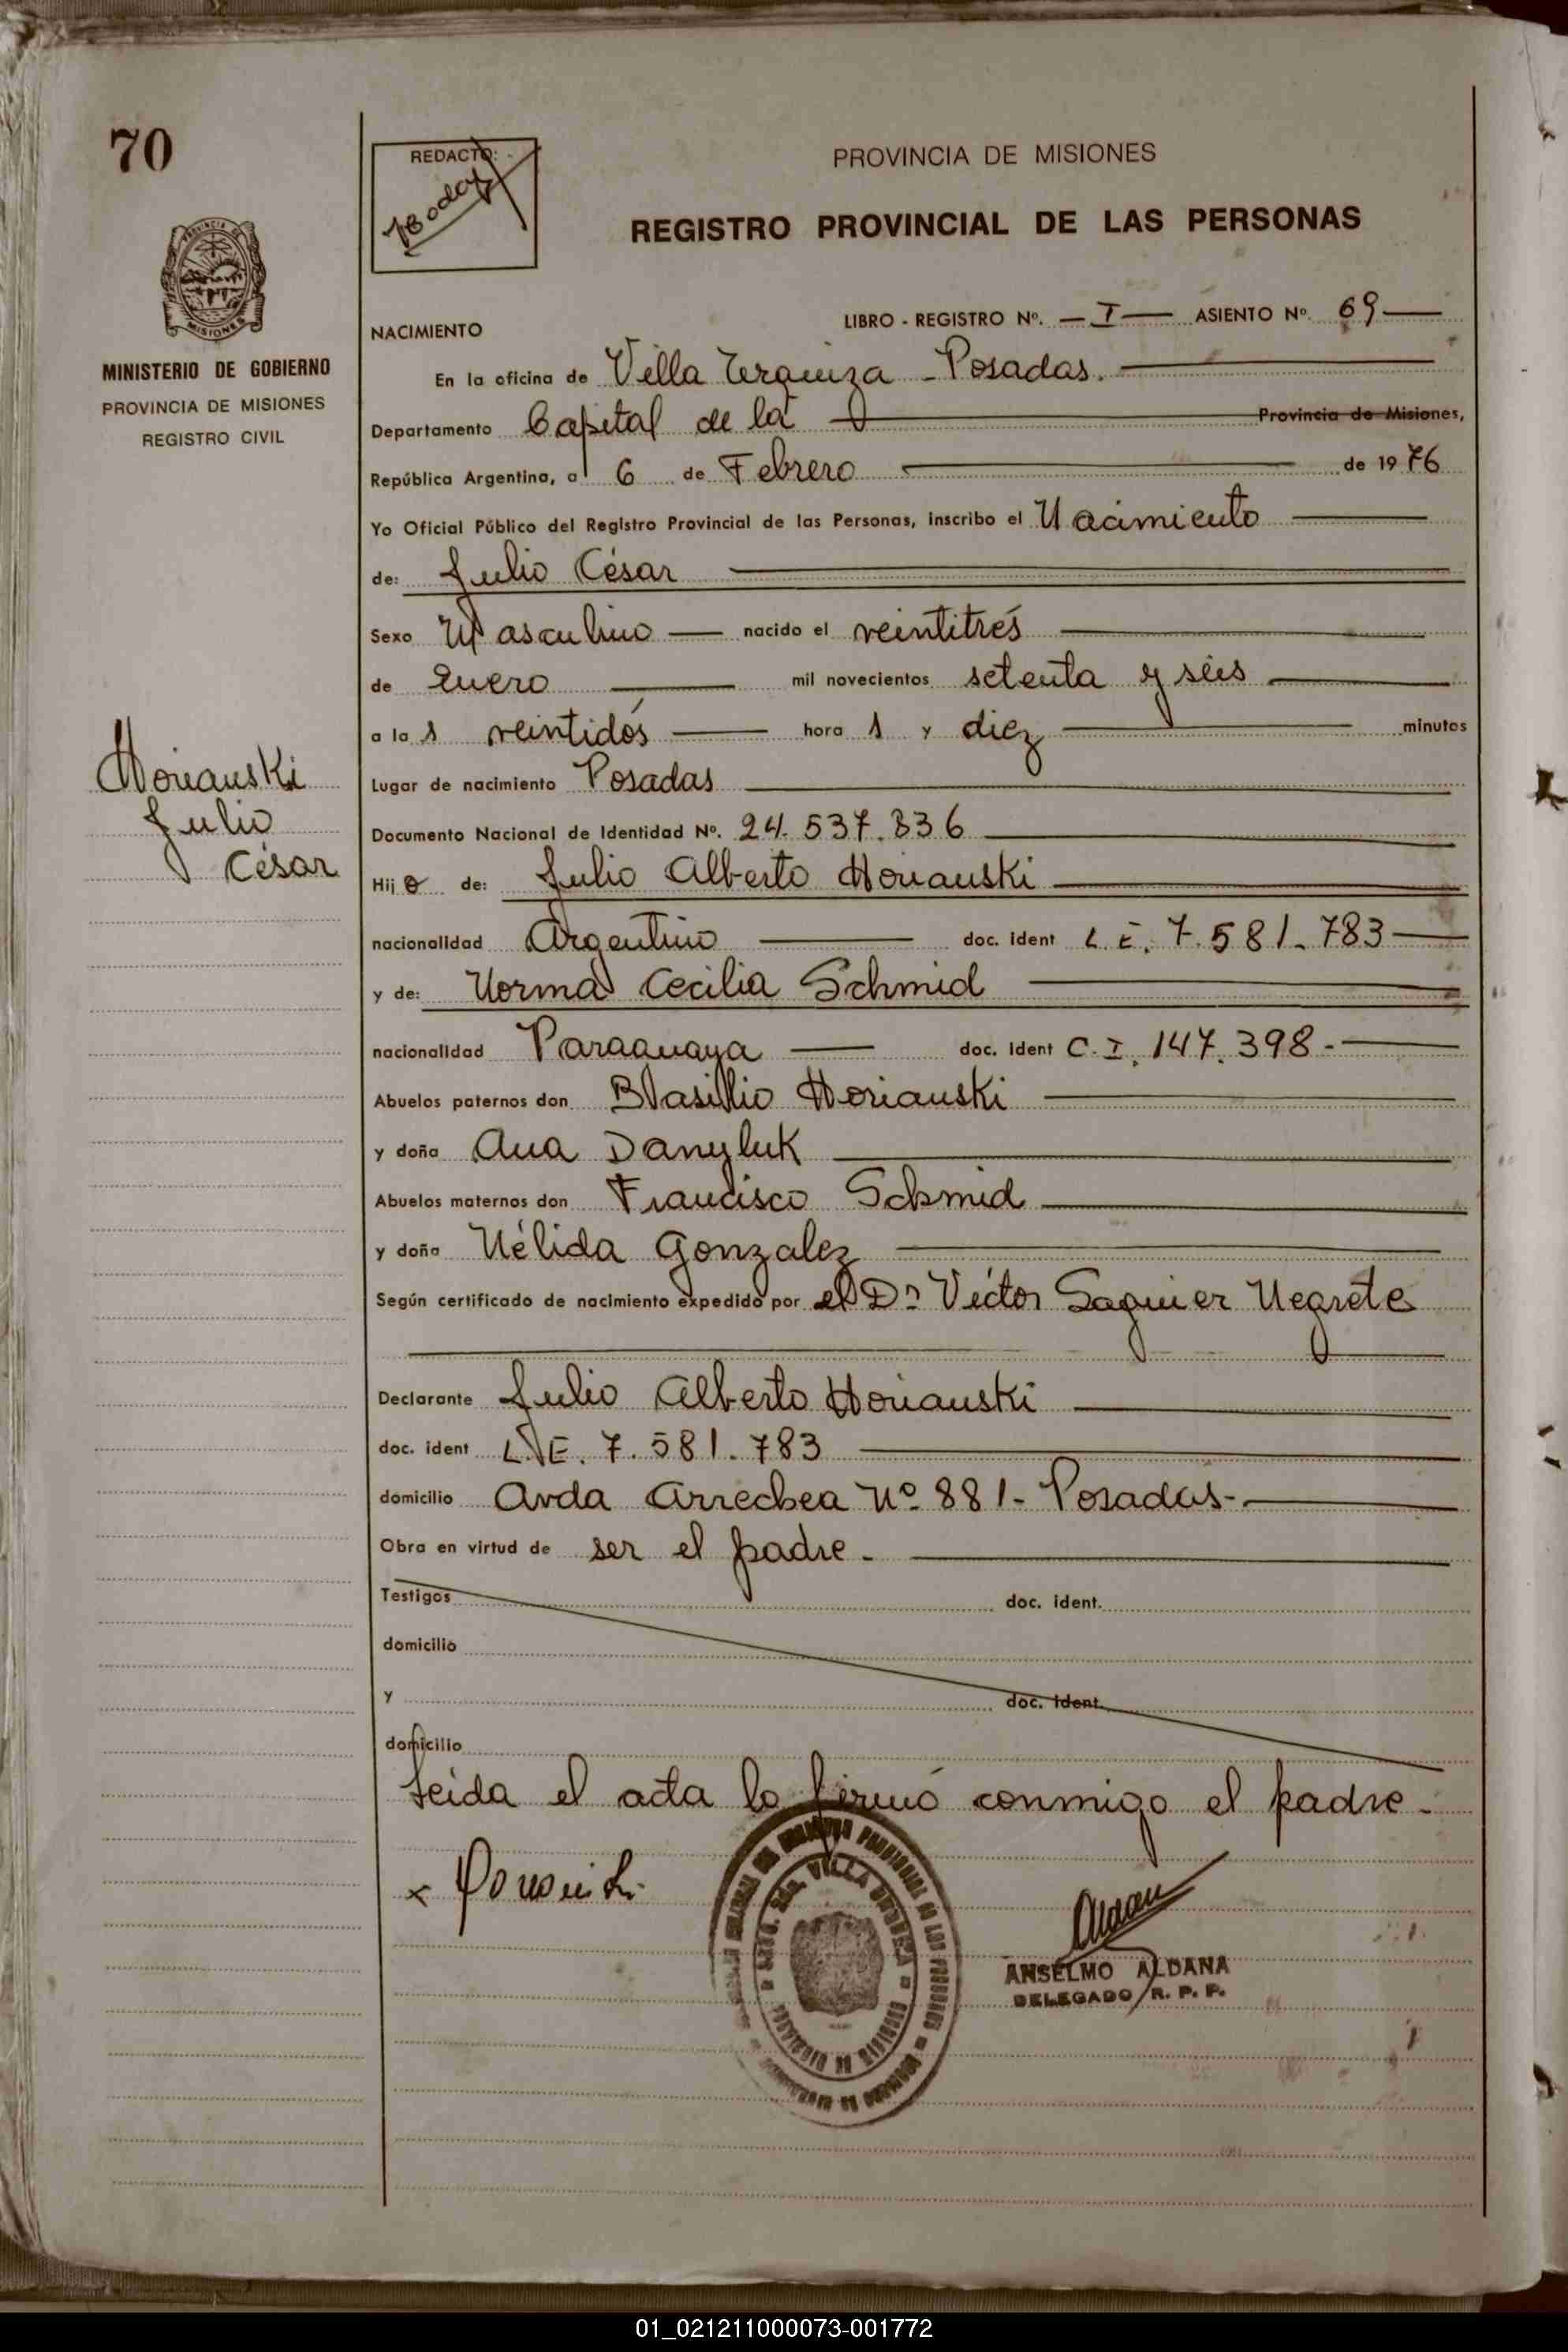 70
REDACTO:
PROVINCIA DE MISIONES
REGISTRO PROVINCIAL DE LAS PERSONAS
MISIONES
MINISTERIO DE GOBIERNO
PROVINCIA DE MISIONES
REGISTRO CIVIL
NACIMIENTO
LIBRO - REGISTRO Nº. I ASIENTO Nº 69
En la oficina de Villa Urquiza - Posadas.
Departamento Capital de la Provincia de Misiones,
República Argentina, a 6 de Febrero de 1976
Yo Oficial Público del Registro Provincial de las Personas, inscribo el Nacimiento
de: Julio César
Sexo Masculino nacido el veintitrés
de Enero mil novecientos setenta y séis
a la s veintidós hora s y diez minutos
Lugar de nacimiento Posadas
Documento Nacional de Identidad Nº. 24.537.836
Hijo de: Julio Alberto Horianski
nacionalidad Argentino doc. ident L.E. 7.581.783
y de: Norma Cecilia Schmid
nacionalidad Paraguaya doc. ident C.I. 147.398.-
Abuelos paternos don Horianski
y doña Ana Danyluk
Abuelos maternos don Francisco Schmid
y doña Nélida Gonzalez
Según certificado de nacimiento expedido por el Dr Víctor Saguier Negrete
Declarante Julio Alberto Horianski
doc. ident L.E. 7.581.783
domicilio Avda Arrechea Nº 881- Posadas-
Obra en virtud de ser el padre.
Testigos doc. ident.
domicilio
y doc. ident.
domicilio
Leída el acta lo firmó conmigo el padre.
Horianski
Julio
César
ANSELMO ALDANA
DELEGADO R. P. P.
01_021211000073-001772